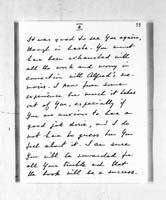 2
53
It was good to see you again,
though in haste. You must
have been exhausted with
all the work and worry in
connection with Alfred's me-
moirs. I know from some
experience how much it takes
out of you, especially if
you are anxious to have a
good job done, and I do
not have to guess how you
feel about it. I am sure
you will be rewarded for
all your trouble and that
the book will be a success.